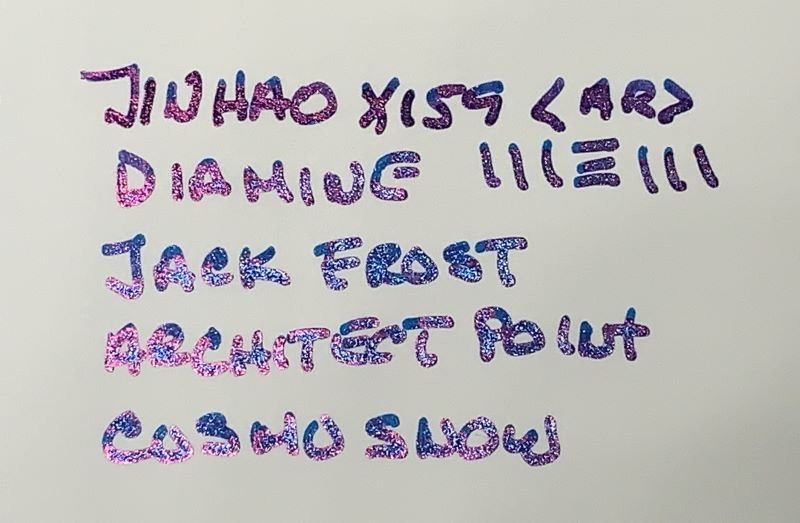 JINHAO X159 <AR>
DIAMINE |||☰|||
JACK FROST
ARCHITECT POINT
COSMO SNOW